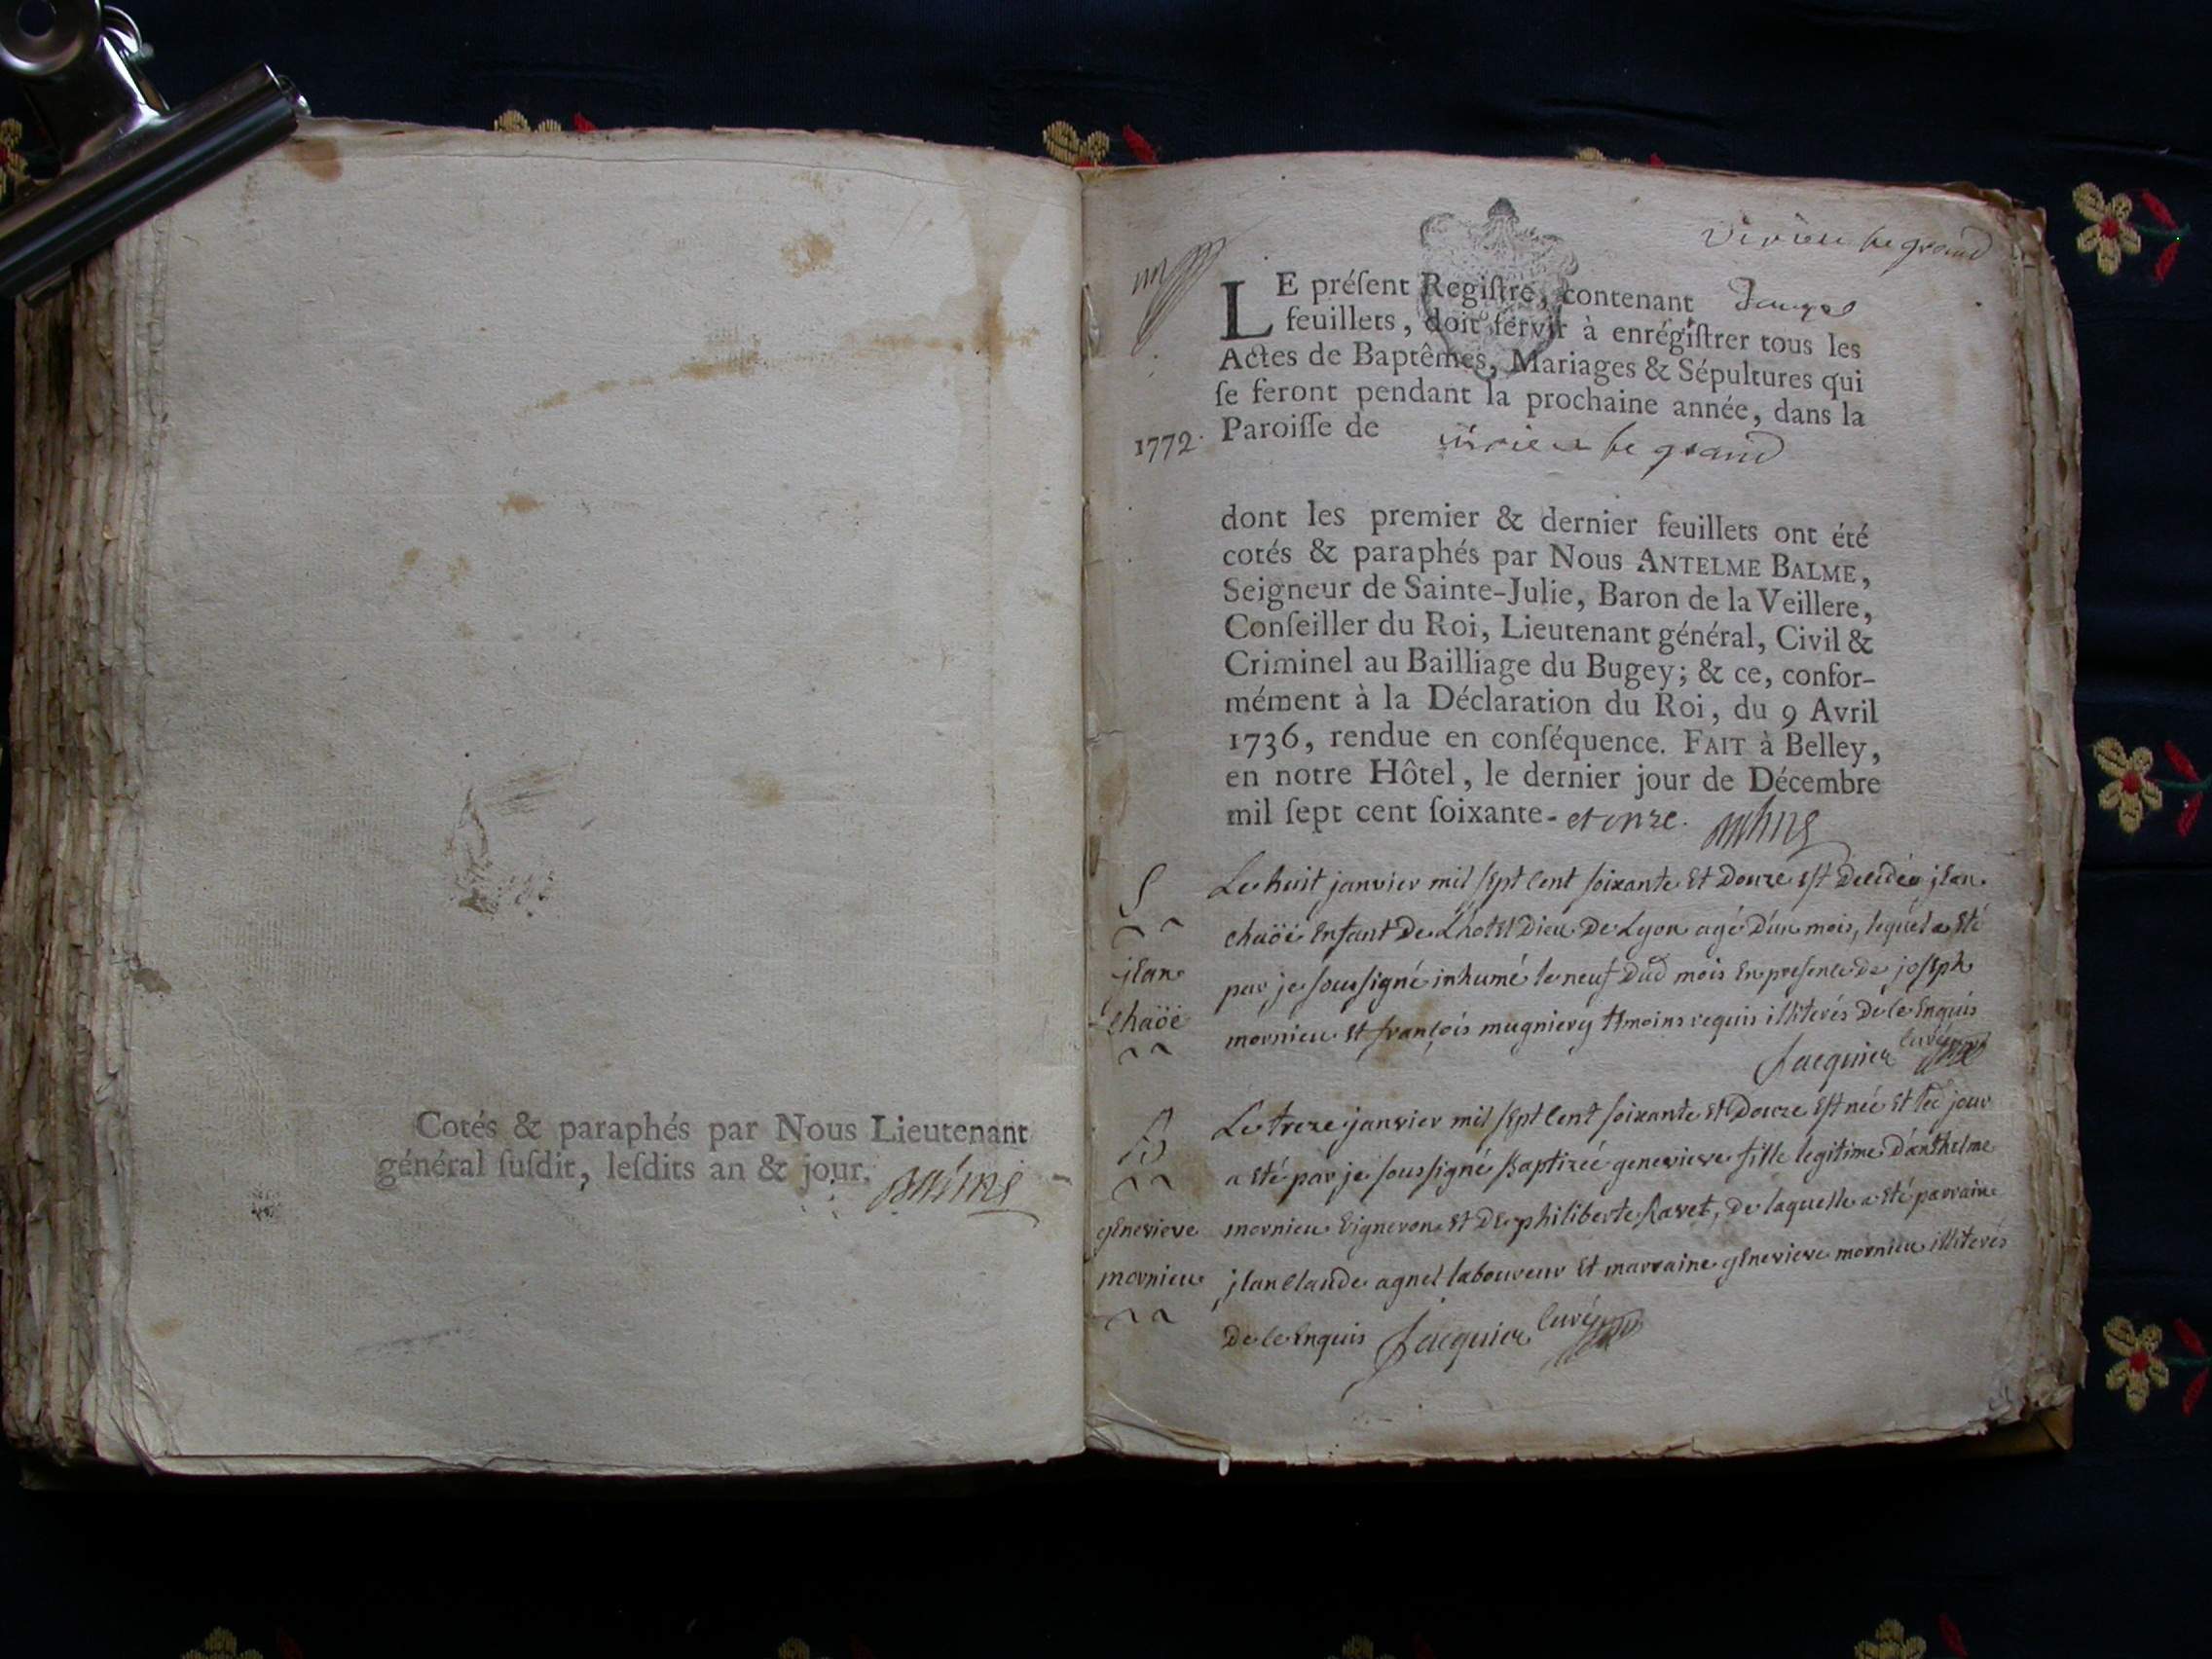 Cotés & paraphés par Nous Lieutenant
général ſuſdit, leſdits an & jour.
virieu le grand
LE préſent Regiſtre, contenant
feuillets, doit ſervir à enrégiſtrer tous les
Actes de Baptêmes, Mariages & Sépultures qui
ſe feront pendant la prochaine année, dans la
1772. Paroiſſe de virieu le grand
dont les premier & dernier feuillets ont été
cotés & paraphés par Nous ANTELME BALME,
Seigneur de Sainte-Julie, Baron de la Veillere,
Conſeiller du Roi, Lieutenant général, Civil &
Criminel au Bailliage du Bugey; & ce, confor-
mément à la Déclaration du Roi, du 9 Avril
1736, rendue en conſéquence. FAIT à Belley,
en notre Hôtel, le dernier jour de Décembre
mil ſept cent ſoixante- et onze.
S
jean
chaöé
Le huit janvier mil sept cent soixante et douze est decedéo jean
chaöé enfant de L'hotel Dieu de Lyon agé d'un mois, lequel a eté
par je soussigné inhumé le neuf dud mois en presence de joseph
mornieu et françois mugniery temoins requis illiterés de ce enquis
Jacquier curé
B
genevieve
mornieu
Le treze janvier mil sept cent soixante et douze est née et led jour
a eté par je soussigné Baptizée genevieve fille legitime d'anthelme
mornieu vigneron et de philiberte Ravet, de laquelle a eté parrain
jean claude agnel laboureur et marraine genevieve mornieu illiterés
de ce enquis Jacquier curé